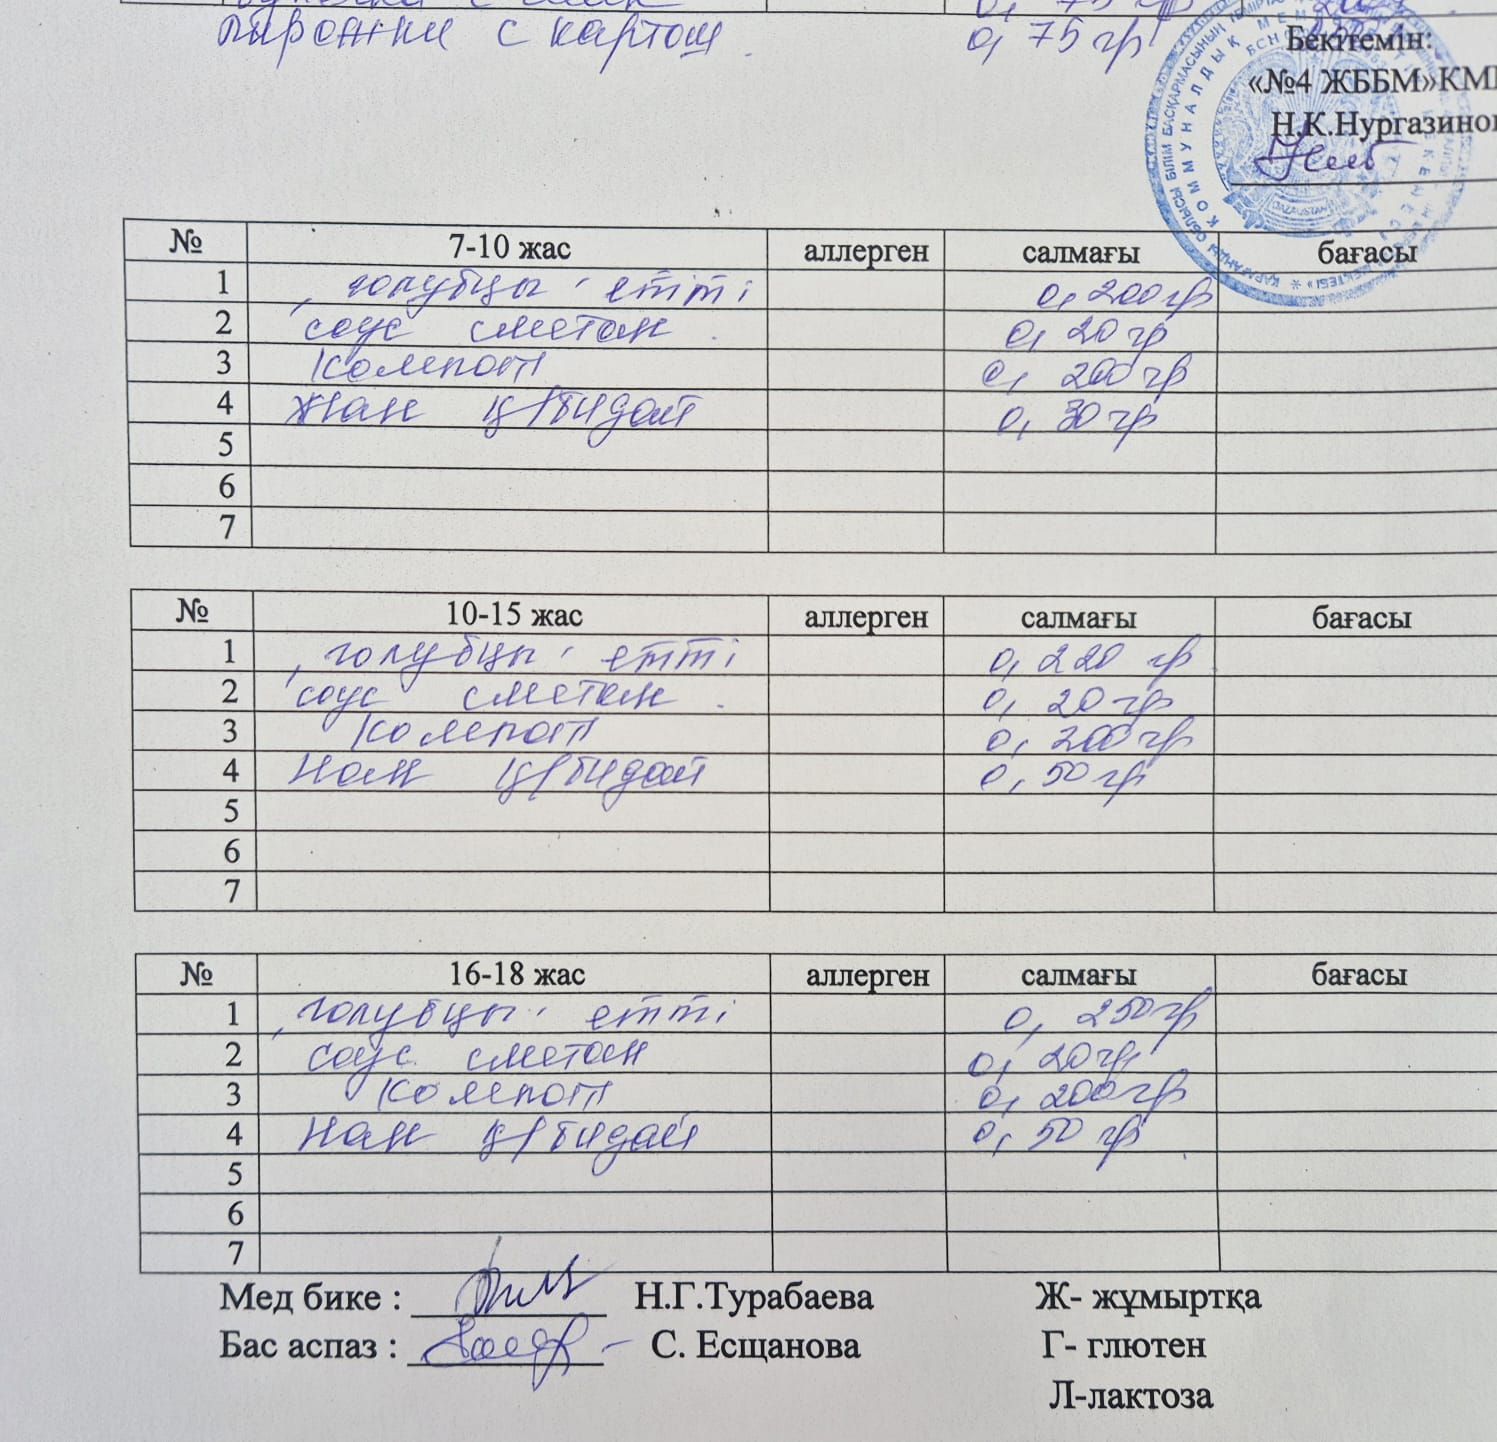 пирожки с картош. 0,75 гр
Бекітемін:
«№4 ЖББМ»КМ
Н.К.Нургазинов
QAZAQSTAN
№ 7-10 жас аллерген салмағы бағасы
1 голубцы етті 0,200гр
2 соус сметан. 0,20 гр
3 Компот 0,200 гр
4 Нан қ/бидай 0,30 гр
5
6
7
№ 10-15 жас аллерген салмағы бағасы
1 голубцы етті 0,220 гр.
2 соус сметан. 0,20 гр
3 Компот 0,200 гр
4 Нан қ/бидай 0,50 гр
5
6
7
№ 16-18 жас аллерген салмағы бағасы
1 голубцы етті 0,250гр
2 соус сметан 0,20гр
3 Компот 0,200гр
4 Нан қ/бидай 0,50 гр
5
6
7
Мед бике : Н.Г.Турабаева Ж- жұмыртқа
Бас аспаз : С. Есщанова Г- глютен
Л-лактоза